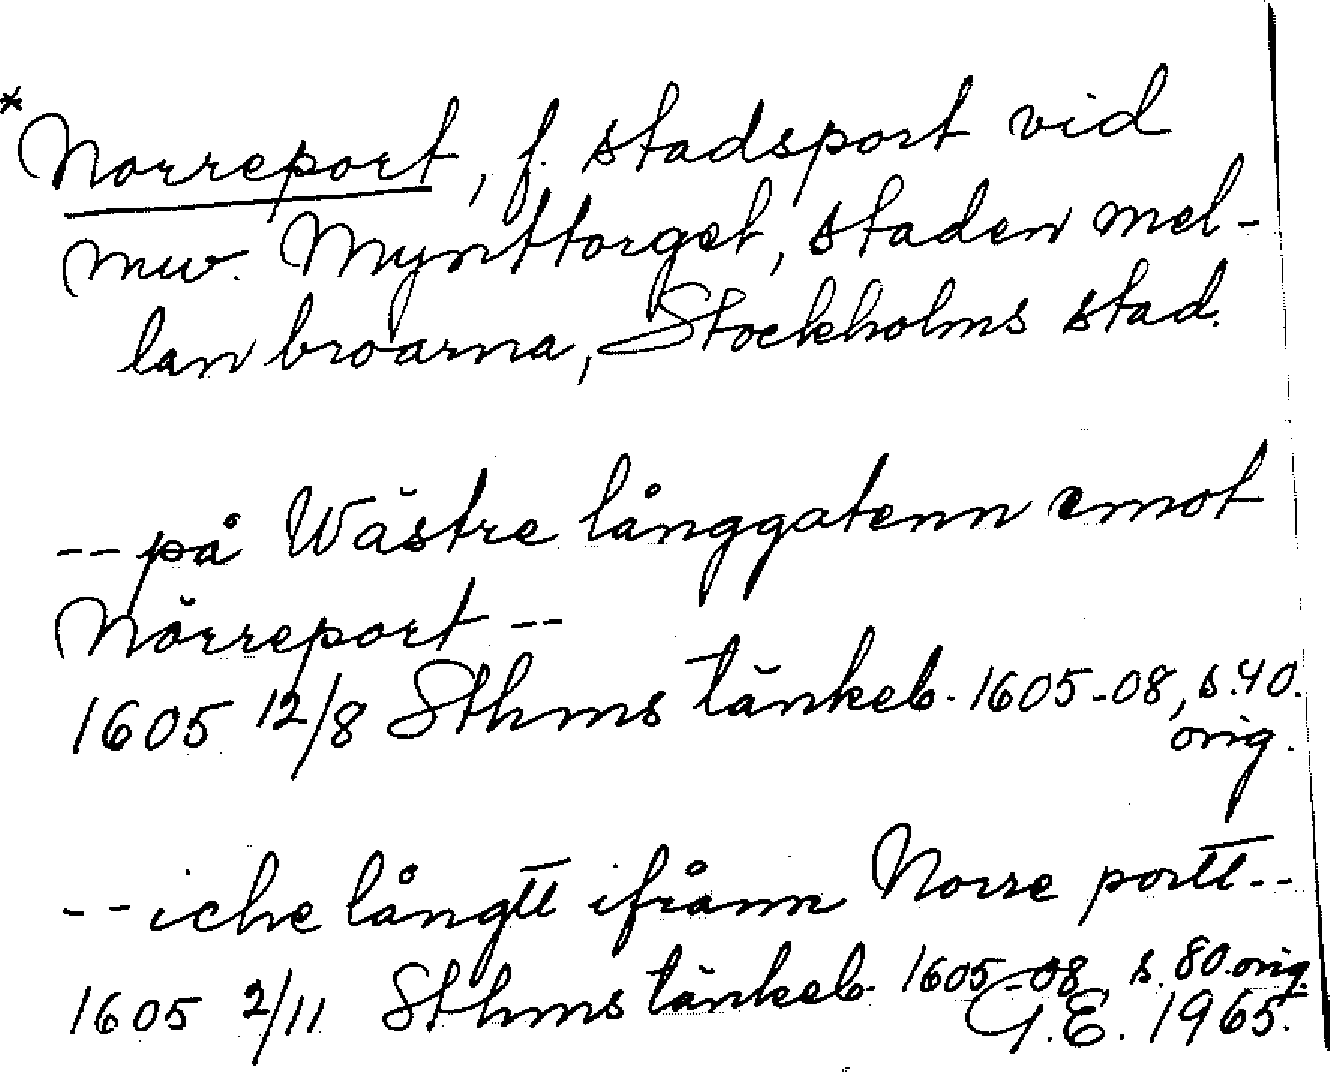 * Norreport, f. stadsport vid
nuv. Mynttorget, staden mel-
lan broarna, Stockholms stad.
-- på Wästre långgatenn emot
Nörreport --
1605 12/8 Sthms tänkeb. 1605-08, s. 40.
orig.
-- iche långtt ifrånn Norre portt --
1605 2/11 Sthms tänkeb. 1605-08 s. 80. orig.
G.E. 1965.